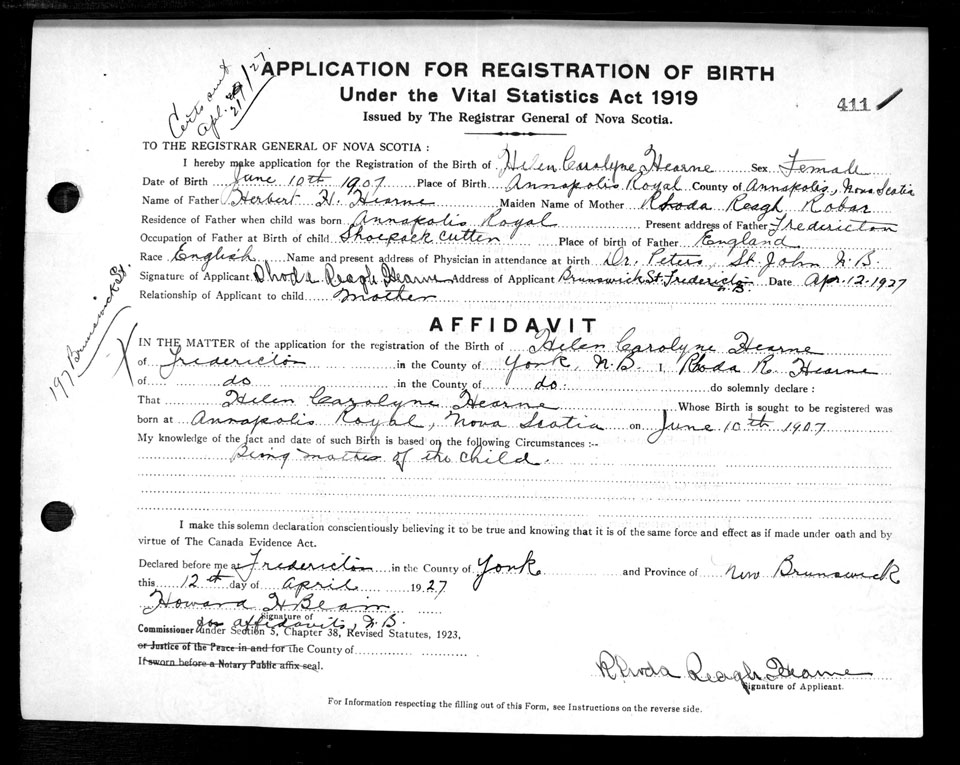 Certs out
Apl. 29/27.
APPLICATION FOR REGISTRATION OF BIRTH
Under the Vital Statistics Act 1919
411
Issued by The Registrar General of Nova Scotia.
TO THE REGISTRAR GENERAL OF NOVA SCOTIA :
I hereby make application for the Registration of the Birth of Helen Carolyne Hearne Sex Female
Date of Birth June 10th 1907 Place of Birth Annapolis Royal County of Annapolis, Nova Scotia
Name of Father Herbert H. Hearne Maiden Name of Mother Rhoda Reagh Robar
Residence of Father when child was born Annapolis Royal Present address of Father Fredericton
Occupation of Father at Birth of child Shoepack cutter Place of Birth of Father England
Race English Name and present address of Physician in attendance at birth Dr. Peters, St. John N.B.
Signature of Applicant Rhoda Reagh Hearne Address of Applicant Brunswick St. Fredericton N.B. Date Apr. 12. 1927
Relationship of Applicant to child Mother
197 Brunswick St.
AFFIDAVIT
IN THE MATTER of the application for the registration of the Birth of Helen Carolyne Hearne
of Fredericton in the County of York, N.B. I, Rhoda R. Hearne
of do in the County of do. do solemnly declare :
That Helen Carolyne Hearne Whose Birth is sought to be registered was
born at Annapolis Royal, Nova Scotia on June 10th 1907
My knowledge of the fact and date of such Birth is based on the following Circumstances :--
Being mother of the child.
I make this solemn declaration conscientiously believing it to be true and knowing that it is of the same force and effect as if made under oath and by
virtue of The Canada Evidence Act.
Declared before me at Fredericton in the County of York and Province of New Brunswick
this 12th day of April 1927
Howard H Beain
Signature of
for affidavits, N.B.
Commissioner under Section 5, Chapter 38, Revised Statutes, 1923,
or Justice of the Peace in and for the County of
If sworn before a Notary Public affix seal.
Rhoda Reagh Hearne
Signature of Applicant.
For Information respecting the filling out of this Form, see Instructions on the reverse side.